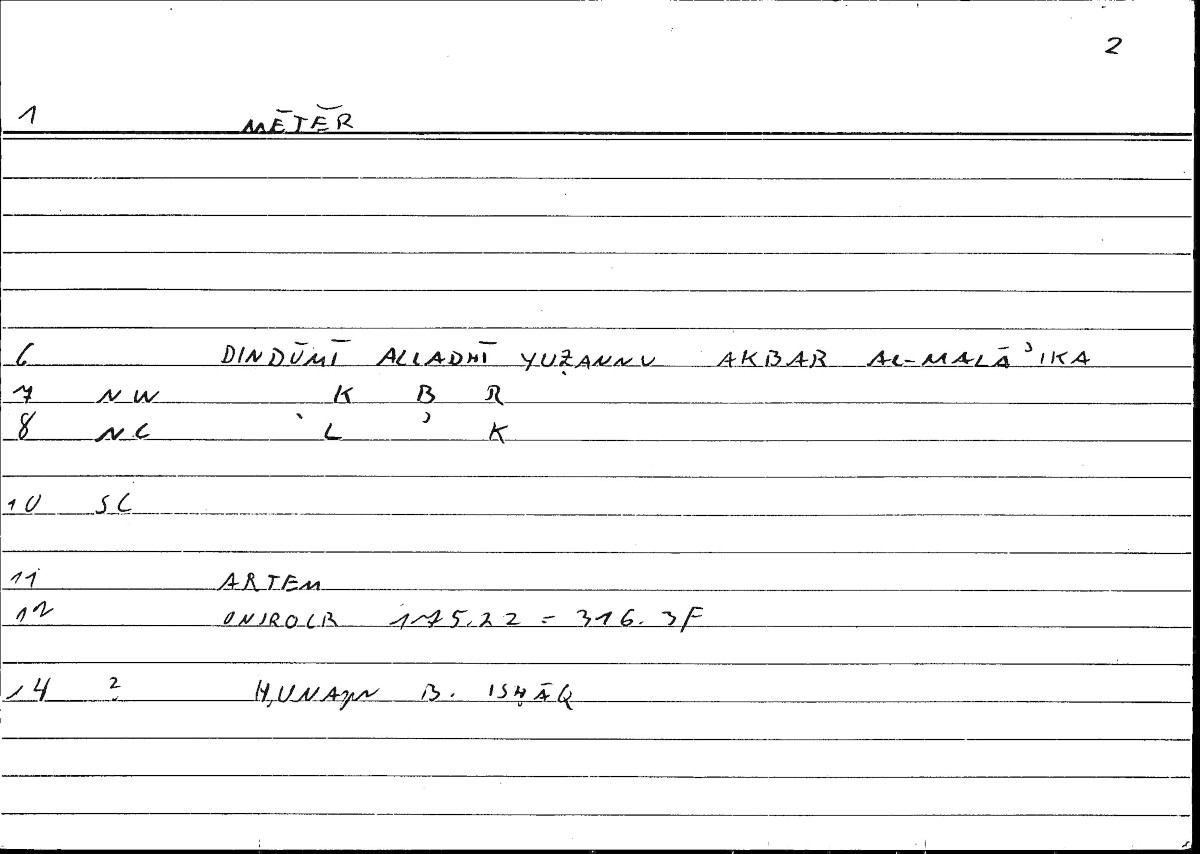 2
1 MĒTĒR
6 DINDŪMĪ ALLADHĪ YUẒANNU AKBAR AL-MALĀʾIKA
7 NW K B R
8 NC ʾ L ʾ K
10 SC
11 ARTEM
12 ONIROCR 175.22 = 316.3F
14 2 ḤUNAYN B. ISḤĀQ